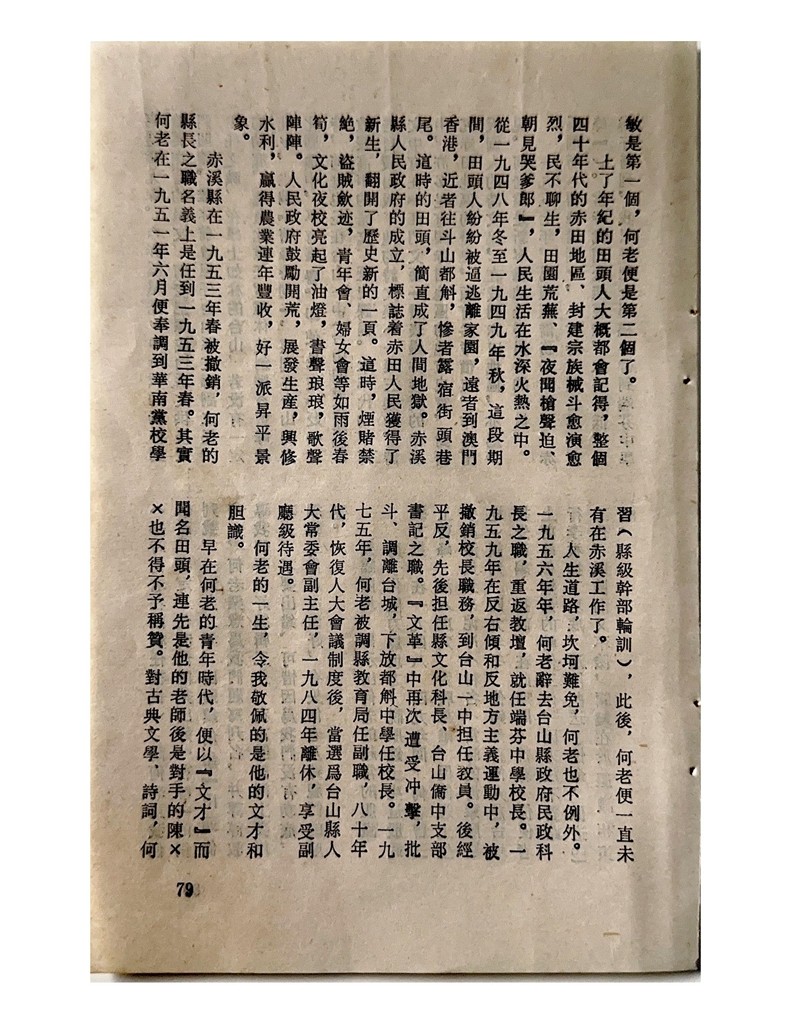 敏是第一個，何老便是第二個了。
上了年紀的田頭人大概都會記得，整個
四十年代的赤田地區、封建宗族械斗愈演愈
烈，民不聊生，田園荒蕪、『夜聞槍聲迫、
朝見哭爹郎』，人民生活在水深火熱之中。
從一九四八年冬至一九四九年秋，這段期
間，田頭人紛紛被逼逃離家園，遠者到澳門
香港，近者往斗山都斛，慘者露宿街頭巷
尾。這時的田頭，簡直成了人間地獄。赤溪
縣人民政府的成立，標誌着赤田人民獲得了
新生，翻開了歷史新的一頁。這時，煙賭禁
絶，盜賊斂迹，青年會、婦女會等如雨後春
筍，文化夜校亮起了油燈，書聲琅琅，歌聲
陣陣。人民政府鼓勵開荒，展發生産，興修
水利，贏得農業連年豐收，好一派昇平景
象。
赤溪縣在一九五三年春被撤銷，何老的
縣長之職名義上是任到一九五三年春。其實
何老在一九五一年六月便奉調到華南黨校學
習（縣級幹部輪訓），此後，何老便一直未
有在赤溪工作了。
人生道路，坎坷難免，何老也不例外。
一九五六年年，何老辭去台山縣政府民政科
長之職，重返教壇，就任端芬中學校長。一
九五九年在反右傾和反地方主義運動中，被
撤銷校長職務，到台山一中担任教員。後經
平反，先後担任縣文化科長、台山僑中支部
書記之職。『文革』中再次遭受冲擊，批
斗、調離台城，下放都斛中學任校長。一九
七五年，何老被調縣教育局任副職，八十年
代，恢復人大會議制度後，當選爲台山縣人
大常委會副主任，一九八四年離休，享受副
廳級待遇。
何老的一生，令我敬佩的是他的文才和
胆識。
早在何老的青年時代，便以『文才』而
聞名田頭，連先是他的老師後是對手的陳×
×也不得不予稱贊。對古典文學、詩詞，何
79